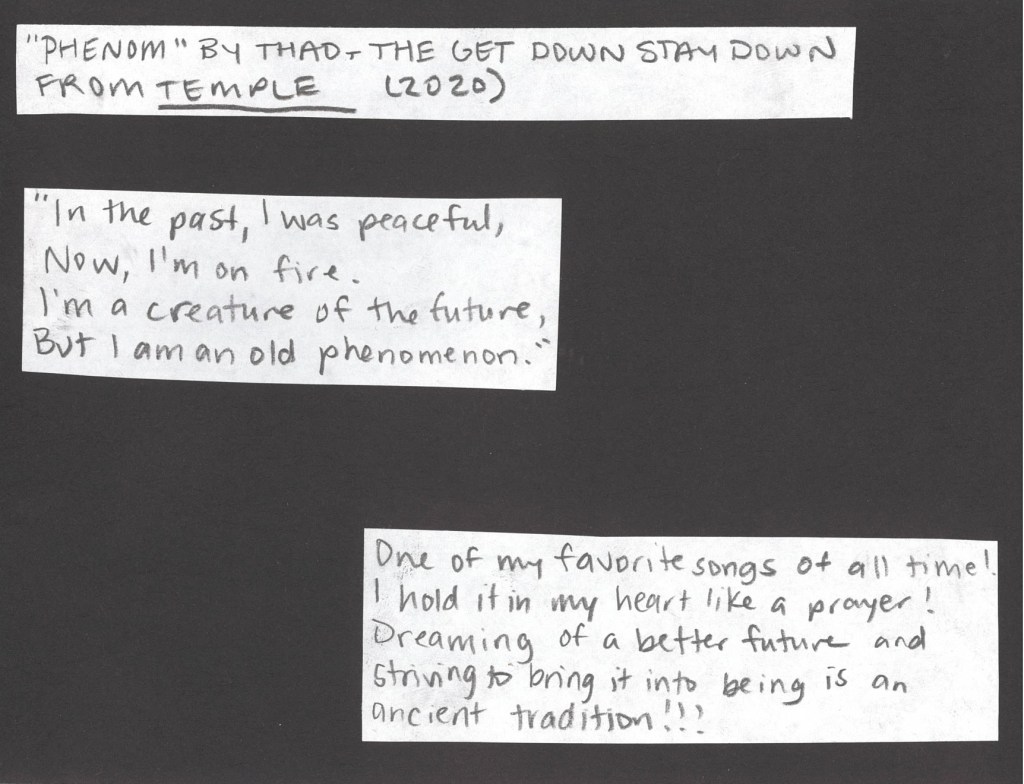 "PHENOM" BY THAO + THE GET DOWN STAY DOWN
FROM TEMPLE (2020)
"In the past, I was peaceful,
Now, I'm on fire.
I'm a creature of the future,
But I am an old phenomenon."
One of my favorite songs of all time!
I hold it in my heart like a prayer!
Dreaming of a better future and
striving to bring it into being is an
ancient tradition!!!